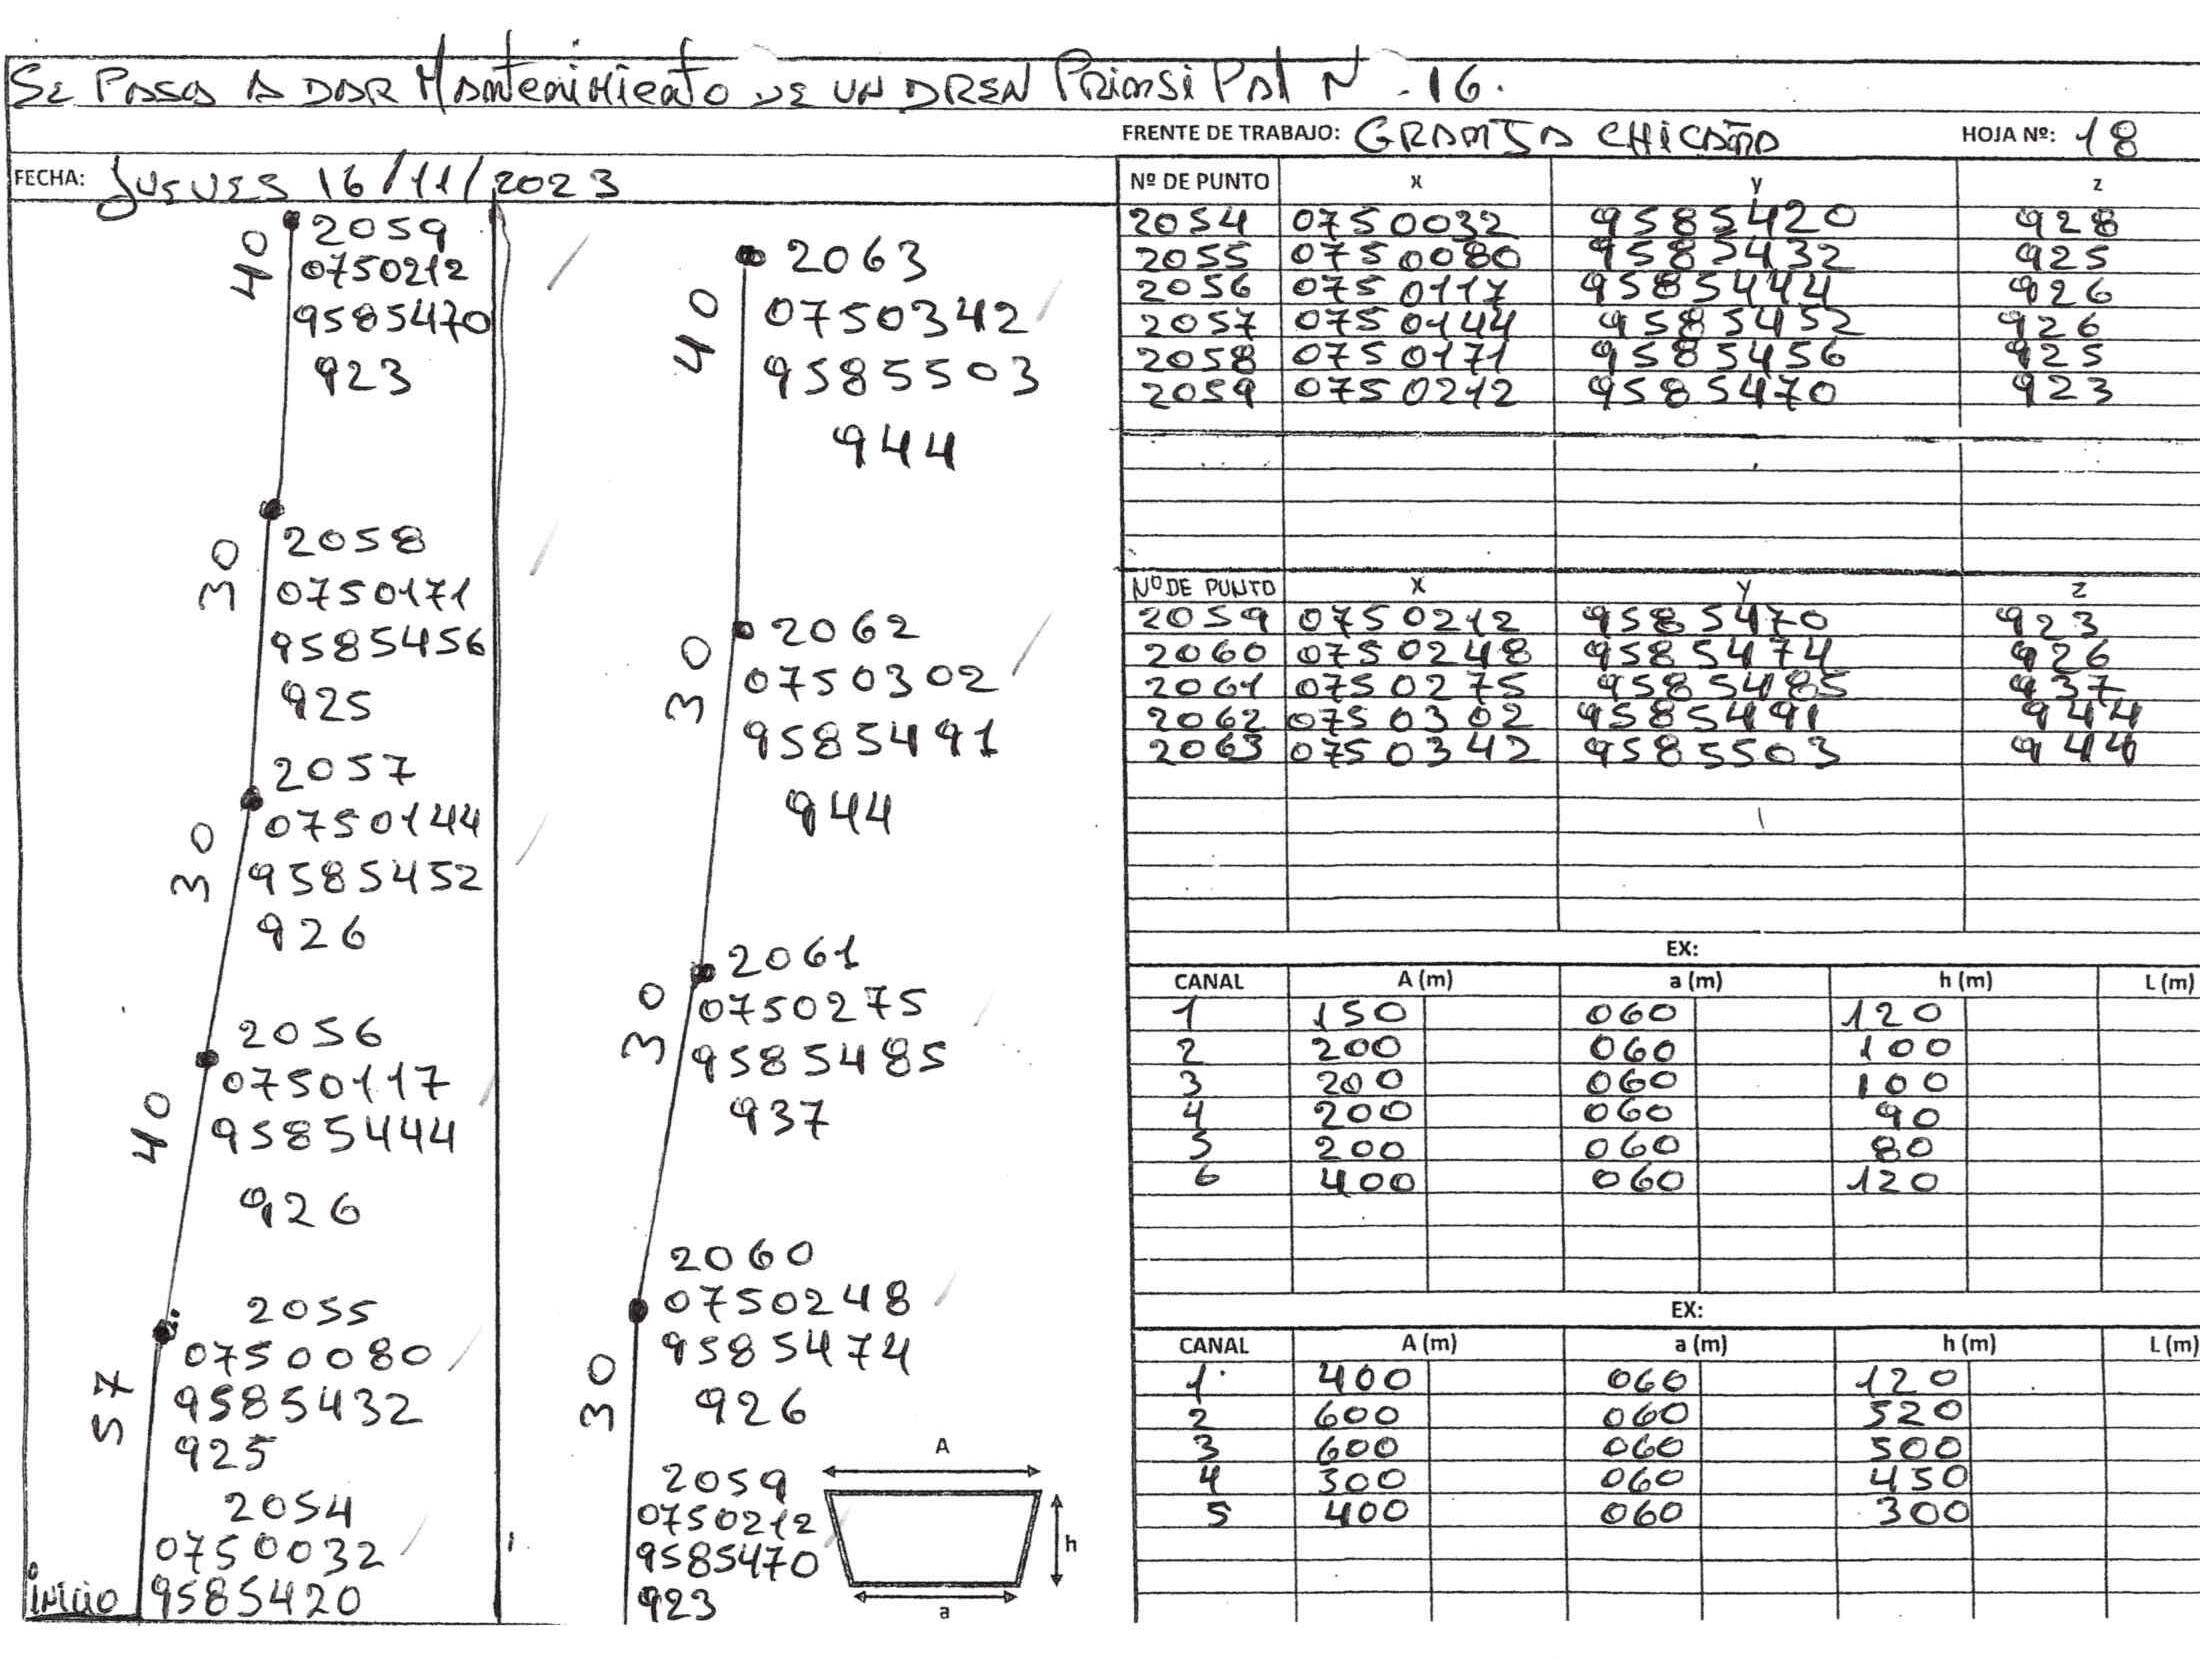 Se Pasa A DAR Mantenimiento de un DREN Prinsipal N-16.
FRENTE DE TRABAJO: GRANJA CHICAÑA HOJA Nº: 18
FECHA: Jueves 16/11/2023
2059
40
0750212
9585470
923
2058
30
0750171
9585456
925
2057
0750144
30
9585452
926
2056
0750117
40
9585444
926
2055
0750080
57
9585432
925
2054
0750032
inicio 9585420
2063
40
0750342
9585503
944
2062
30
0750302
9585491
944
2061
30
0750275
9585485
937
2060
0750248
9585474
30
926
2059
0750212
9585470
923
A
h
a
Nº DE PUNTO x y z
2054 0750032 9585420 928
2055 0750080 9585432 925
2056 0750117 9585444 926
2057 0750144 9585452 926
2058 0750171 9585456 925
2059 0750212 9585470 923
Nº DE PUNTO X Y Z
2059 0750212 9585470 923
2060 0750248 9585474 926
2061 0750275 9585485 937
2062 0750302 9585491 944
2063 0750342 9585503 944
EX:
CANAL A (m) a (m) h (m) L (m)
1 150 060 120
2 200 060 100
3 200 060 100
4 200 060 90
5 200 060 80
6 400 060 120
EX:
CANAL A (m) a (m) h (m) L (m)
1 400 060 120
2 600 060 520
3 600 060 500
4 500 060 450
5 400 060 300